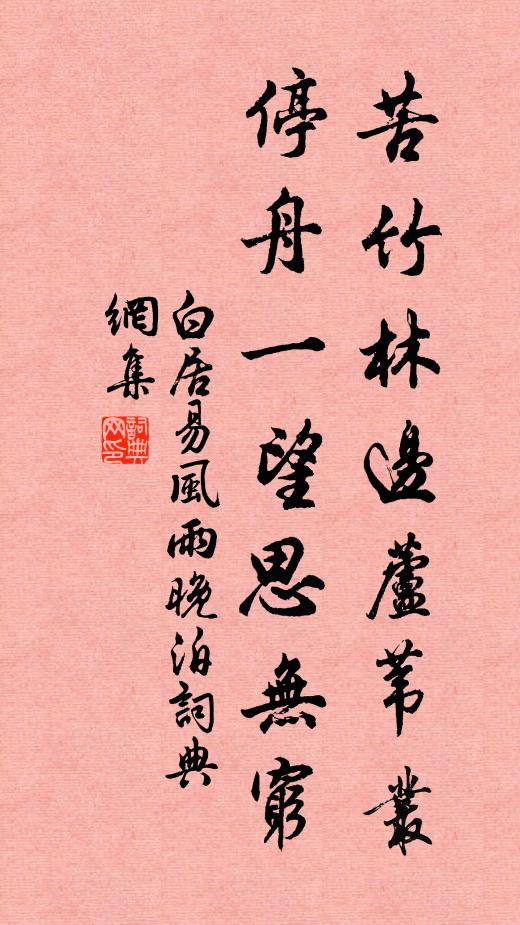 苦竹林邊蘆葦叢
停舟一望思無窮
白居易風雨晚泊詞典
網集
詞典網印